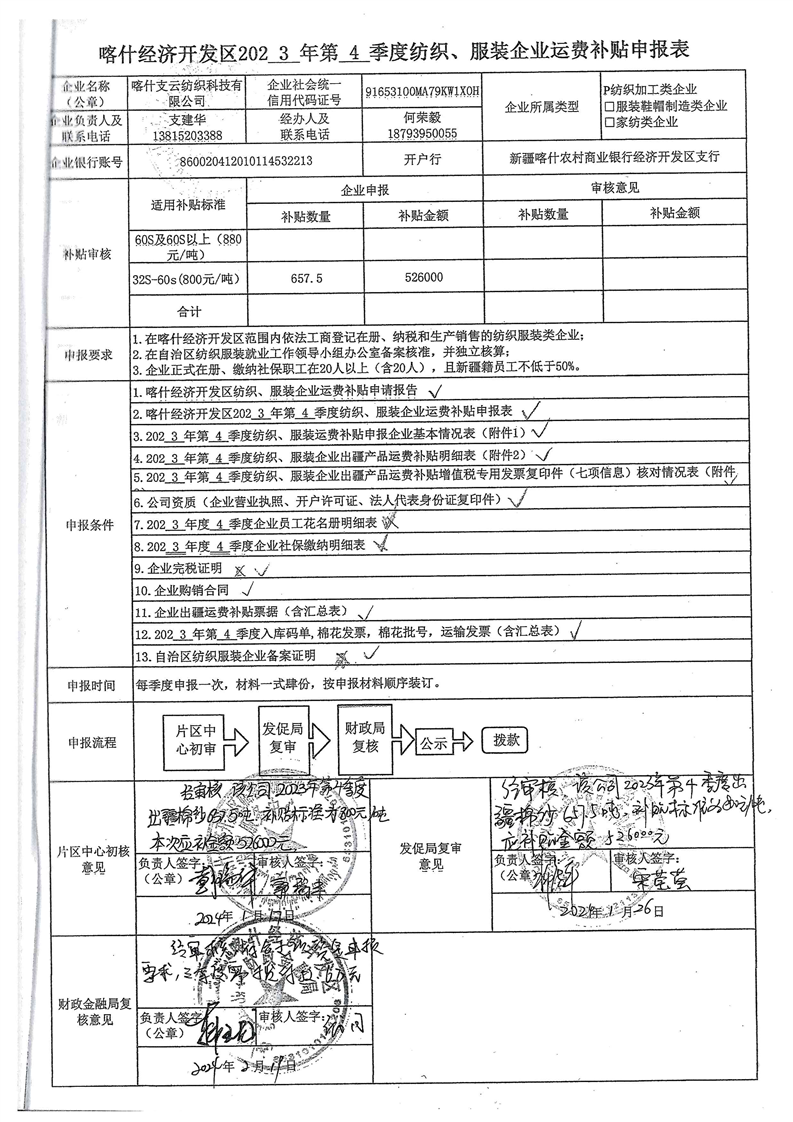 喀什经济开发区202 3 年第 4 季度纺织、服装企业运费补贴申报表
企业名称（公章）
喀什支云纺织科技有限公司
企业社会统一信用代码证号
91653100MA79KW1X0H
企业所属类型
P纺织加工类企业
□服装鞋帽制造类企业
□家纺类企业
企业负责人及联系电话
支建华
13815203388
经办人及联系电话
何荣毅
18793950055
企业银行账号
860020412010114532213
开户行
新疆喀什农村商业银行经济开发区支行
补贴审核
适用补贴标准
企业申报
审核意见
补贴数量
补贴金额
补贴数量
补贴金额
60S及60S以上（880元/吨）
32S-60s(800元/吨）
657.5
526000
合计
申报要求
1.在喀什经济开发区范围内依法工商登记在册、纳税和生产销售的纺织服装类企业；
2.在自治区纺织服装就业工作领导小组办公室备案核准，并独立核算；
3.企业正式在册、缴纳社保职工在20人以上（含20人），且新疆籍员工不低于50%。
申报条件
1.喀什经济开发区纺织、服装企业运费补贴申请报告 ✓
2.喀什经济开发区202 3 年第 4 季度纺织、服装企业运费补贴申报表 ✓
3.202 3 年第 4 季度纺织、服装运费补贴申报企业基本情况表（附件1） ✓
4.202 3 年第 4 季度纺织、服装企业出疆产品运费补贴明细表（附件2） ✓
5.202 3 年第 4 季度纺织、服装企业出疆产品运费补贴增值税专用发票复印件（七项信息）核对情况表（附件 ✓
6.公司资质（企业营业执照、开户许可证、法人代表身份证复印件） ✓
7.202 3 年度 4 季度企业员工花名册明细表
8.202 3 年度 4 季度企业社保缴纳明细表
9.企业完税证明 ✓
10.企业购销合同 ✓
11.企业出疆运费补贴票据（含汇总表） ✓
12.202 3 年第 4 季度入库码单,棉花发票，棉花批号，运输发票（含汇总表） ✓
13.自治区纺织服装企业备案证明 ✓
申报时间
每季度申报一次，材料一式肆份，按申报材料顺序装订。
申报流程
片区中心初审
发促局复审
财政局复核
公示
拨款
片区中心初核意见
经审核，该公司2023年第4季度
出疆棉纱657.5吨，补贴标准为800元/吨
本次应补金额526000元
负责人签字：
（公章）
审核人签字：
2024年1月17日
发促局复审意见
经审核，该公司2023年第4季度出
疆棉纱657.5吨，补贴标准为800元/吨，
应补贴金额526000元
负责人签字：
（公章）
审核人签字：
2024年1月26日
财政金融局复核意见
负责人签字：
（公章）
审核人签字：
2024年2月19日